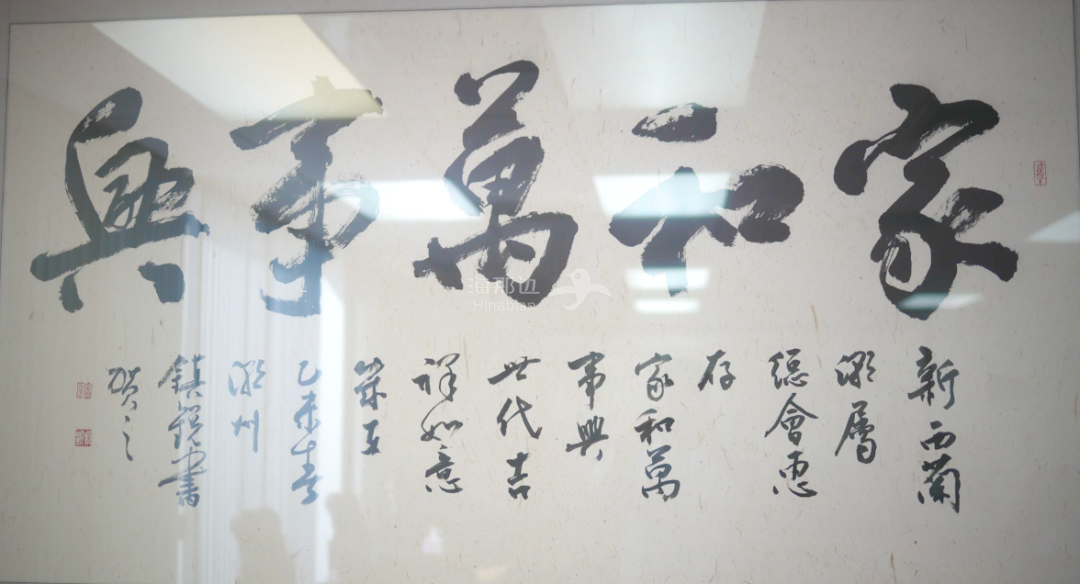 家和萬事興
新西蘭
潮屬
總會惠
存
家和萬
事興
世代吉
祥如意
歲在
乙未春
潮州
鎮銳書
賀之
海那边
Hinabian